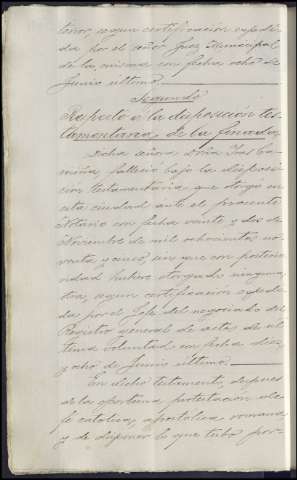 torio, segun certificación expedi-
da por el señor Juez Municipal
de la misma con fecha ocho de
Junio último.
Segundo
Respecto á la disposición tes-
tamentaria de la finada.
Dicha señora Doña Inés
falleció bajo la disposi-
ción testamentaria que otorgó en
esta ciudad ante el presente
Notario con fecha veinte y dos de
Noviembre de mil ochocientos no-
venta y cinco, sin que con posterio-
ridad hubiere otorgado ninguna
otra, segun certificación expedi-
da por el Jefe del negociado del
Registro general de actos de úl-
tima voluntad con fecha diez
y ocho de Junio último.
En dicho testamento, despues
de la oportuna protestación de
fe católica, apostólica romana
y de disponer lo que tubo por